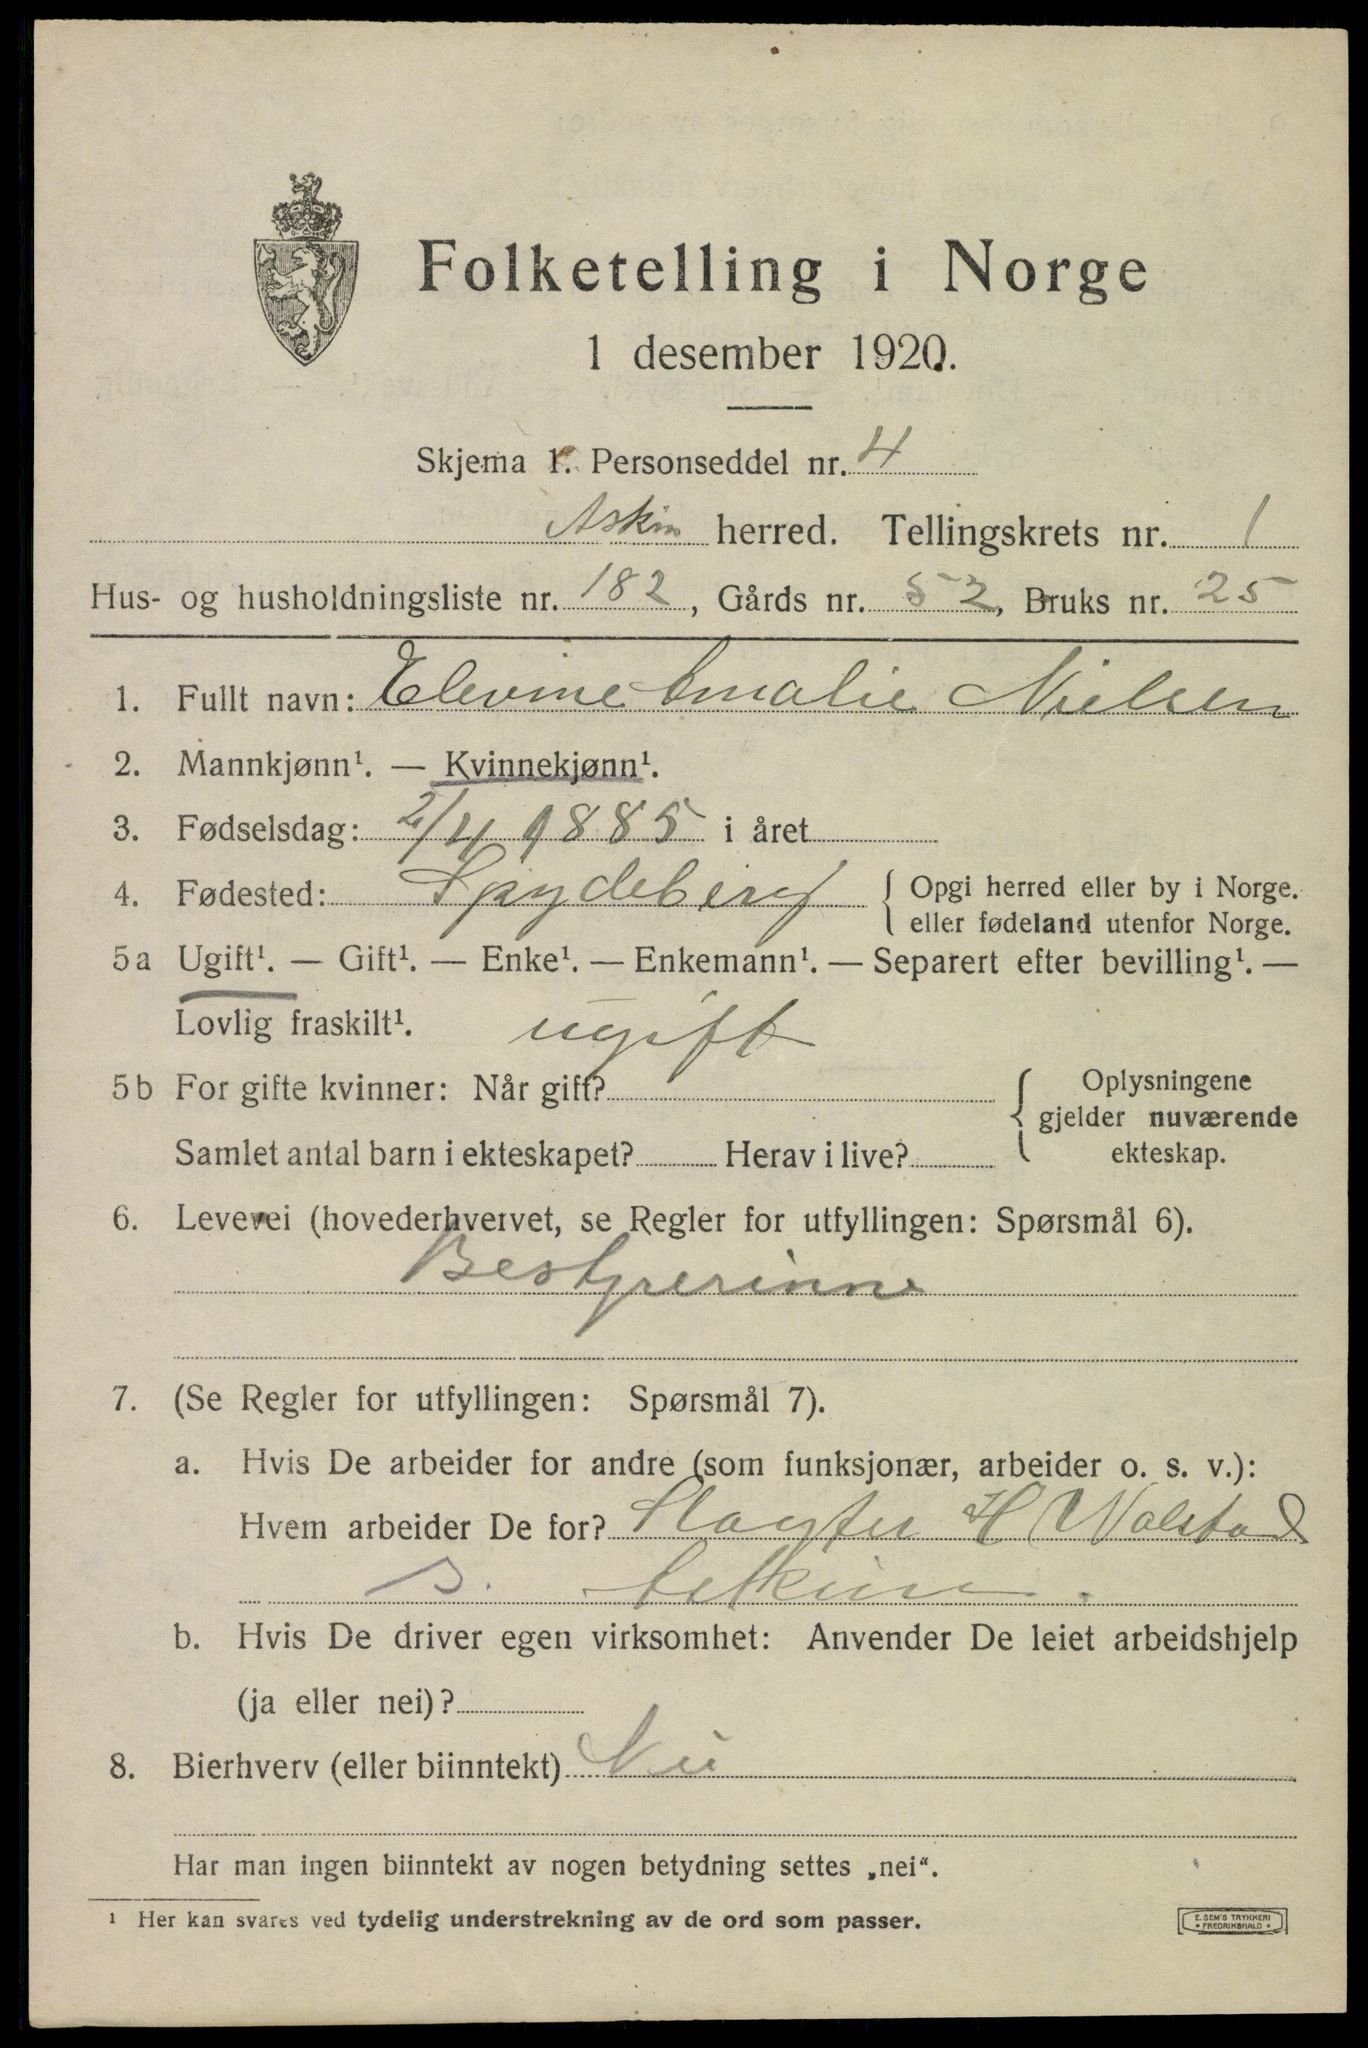 Folketelling i Norge
1 desember 1920.
Skjema 1. Personseddel nr. 4
Askim herred. Tellingskrets nr. 1
Hus- og husholdningsliste nr. 182, Gårds nr. 52, Bruks nr. 25
1. Fullt navn: Elevine Amalie Nielsen
2. Mannkjønn¹. — Kvinnekjønn¹.
3. Fødselsdag: 2/4 1885 i året
4. Fødested: Spydeberg { Opgi herred eller by i Norge.
eller fødeland utenfor Norge.
5a Ugift¹. — Gift¹. — Enke¹. — Enkemann¹. — Separert efter bevilling¹. —
Lovlig fraskilt¹. ugift
5b For gifte kvinner: Når gift? { Oplysningene
gjelder nuværende
Samlet antal barn i ekteskapet? Herav i live? ekteskap.
6. Levevei (hovederhvervet, se Regler for utfyllingen: Spørsmål 6).
Bestyrerinne
7. (Se Regler for utfyllingen: Spørsmål 7).
a. Hvis De arbeider for andre (som funksjonær, arbeider o. s. v.):
Hvem arbeider De for? Slagter H Walstad
Askim.
b. Hvis De driver egen virksomhet: Anvender De leiet arbeidshjelp
(ja eller nei)?
8. Bierhverv (eller biinntekt) Nei
Har man ingen biinntekt av nogen betydning settes „nei“.
¹ Her kan svares ved tydelig understrekning av de ord som passer.
E. SEM'S TRYKKERI
FREDRIKSHALD